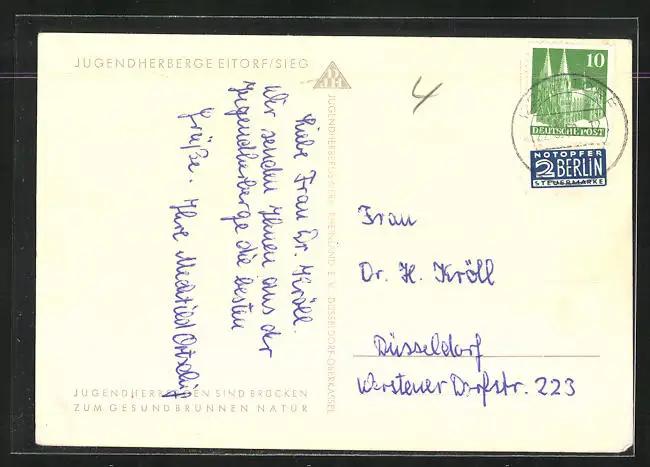 JUGENDHERBERGE EITORF/SIEG
Liebe Frau Dr. Kröll.
Wir senden Ihnen aus der
Jugendherberge die besten
Grüße. Ihre Mechtild
JUGENDHERBERGEN SIND BRÜCKEN
ZUM GESUNDBRUNNEN NATUR
JUGENDHERBERGSWERK RHEINLAND E. V. DÜSSELDORF-OBERKASSEL
4
10
DEUTSCHE POST
NOTOPFER
2 BERLIN
STEUERMARKE
Frau
Dr. H. Kröll
Düsseldorf
Werstener Dorfstr. 223